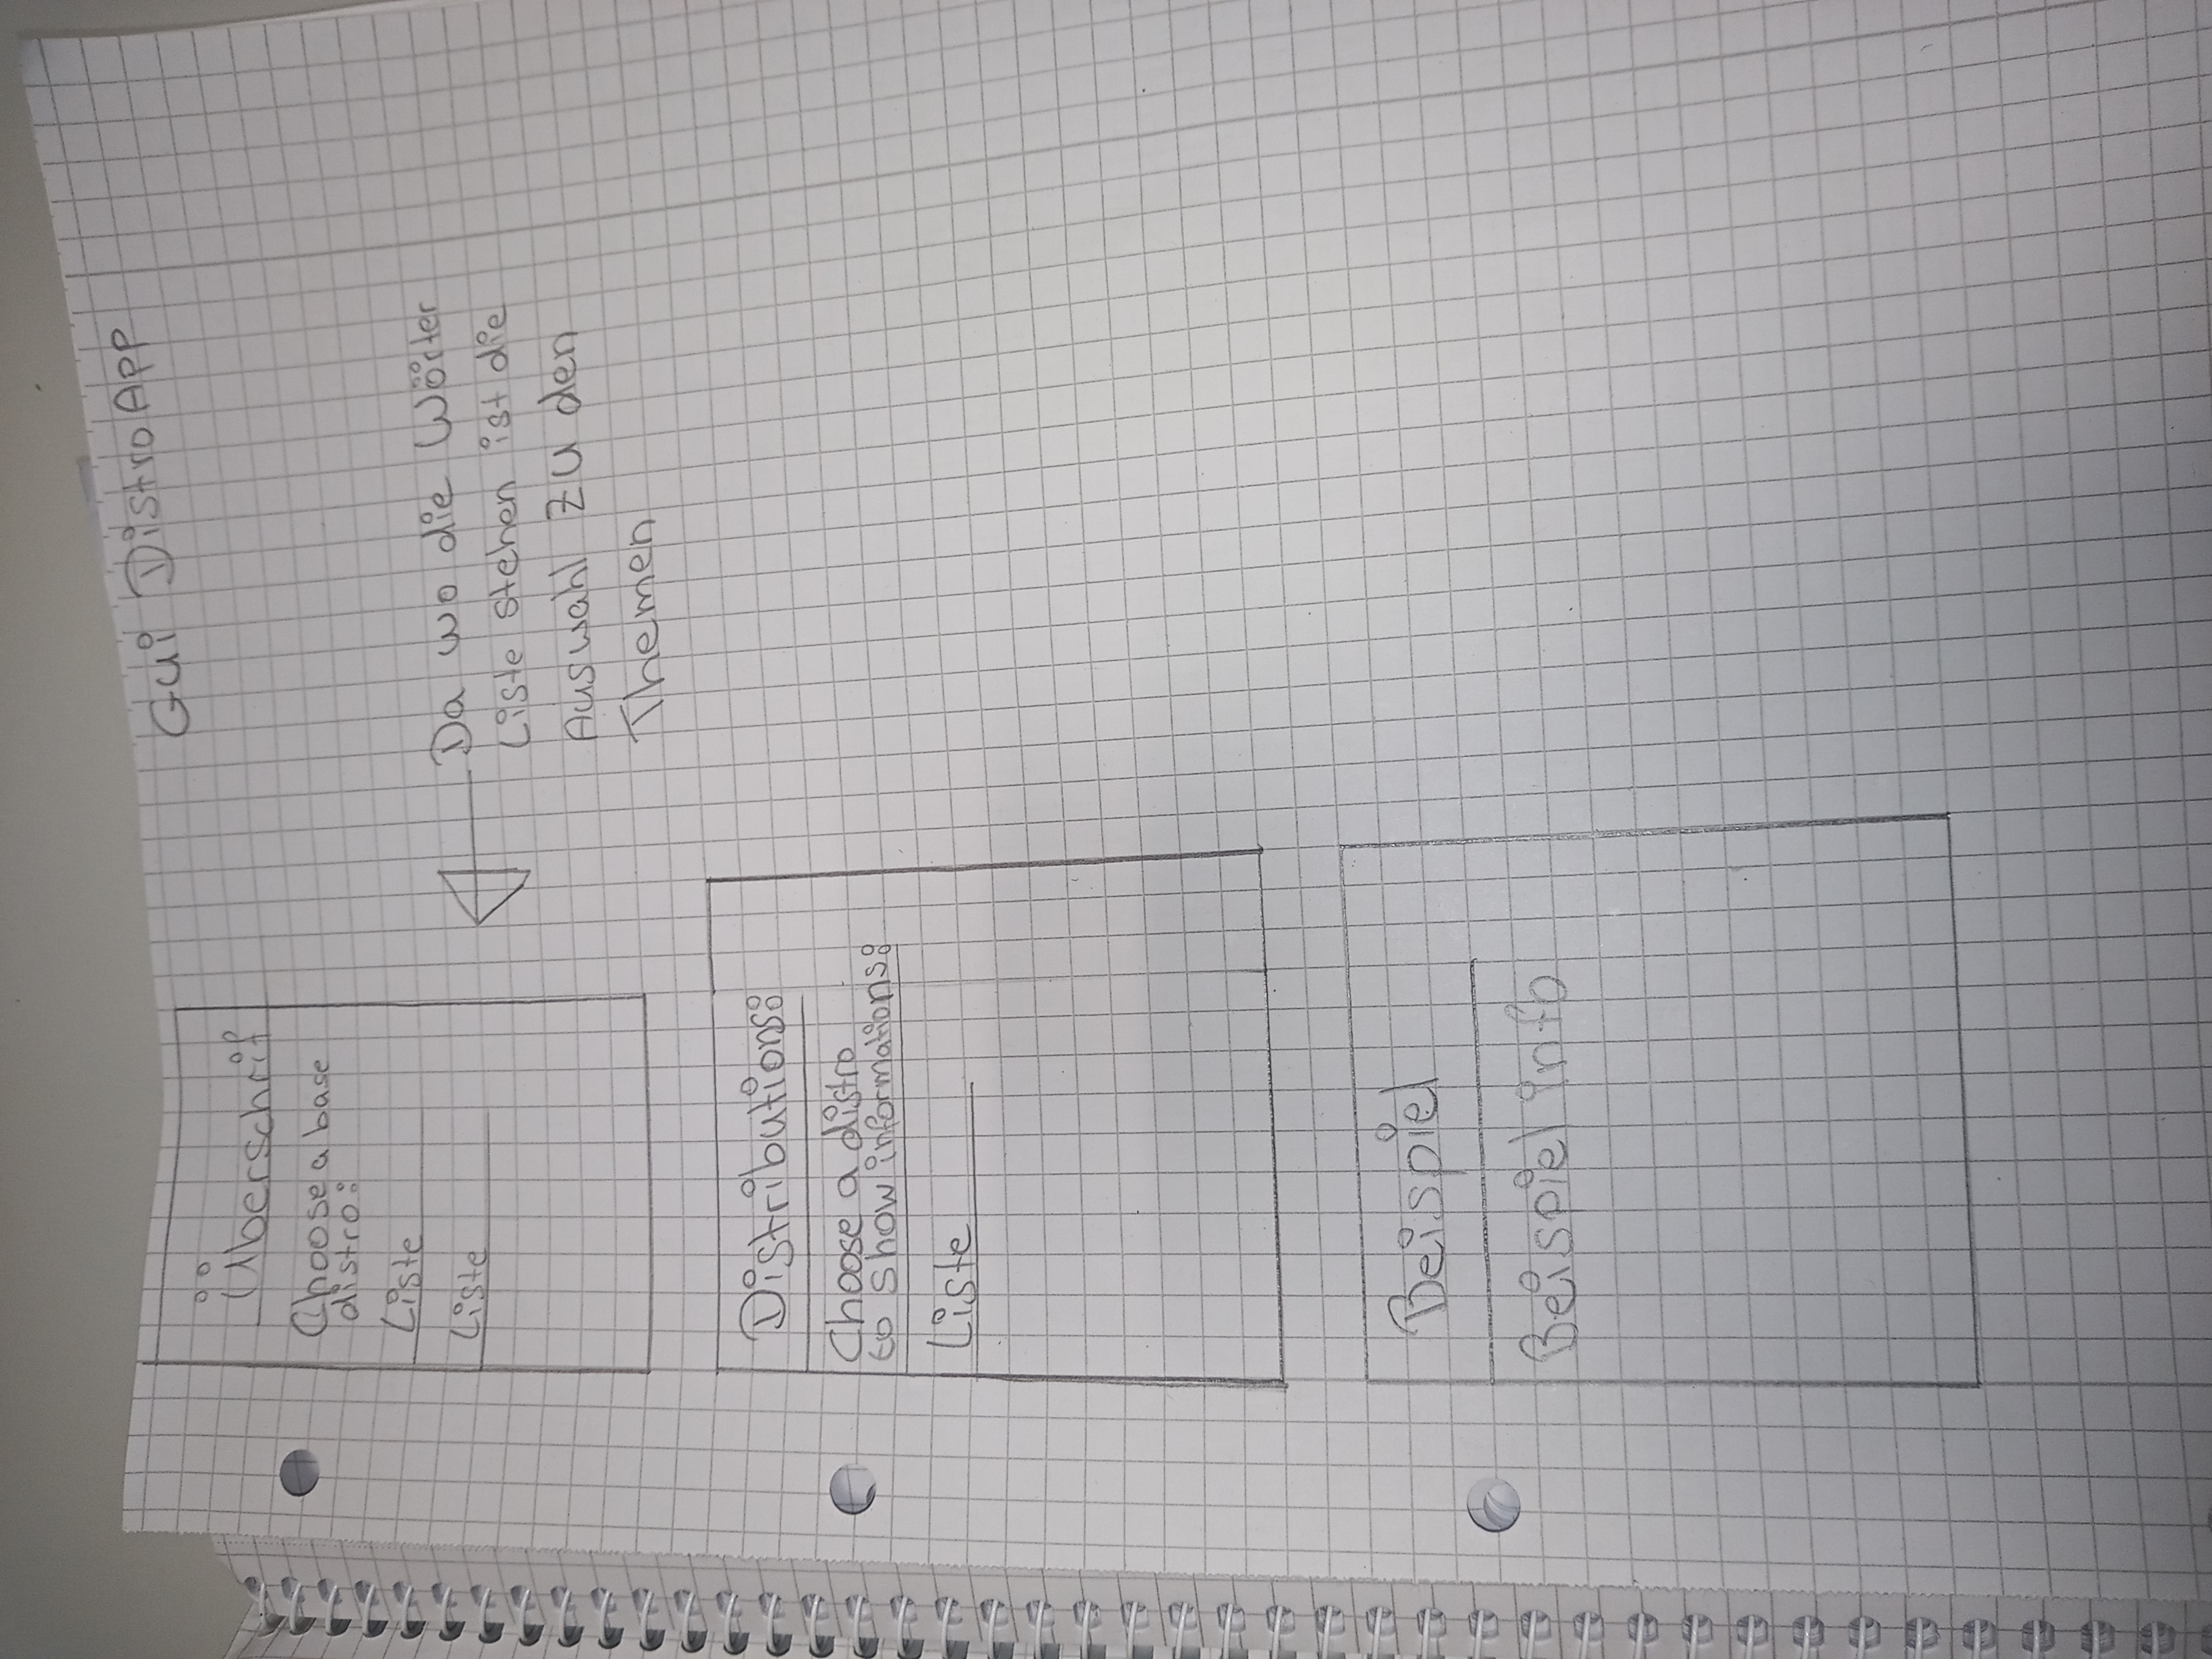 Gui Distro App
Überschrif
Choose a base
distro:
Liste
Liste
Da wo die Wörter
Liste stehen ist die
Auswahl zu den
Themen
Distributions:
Choose a distro
to show informations:
Liste
Beispiel
Beispiel info